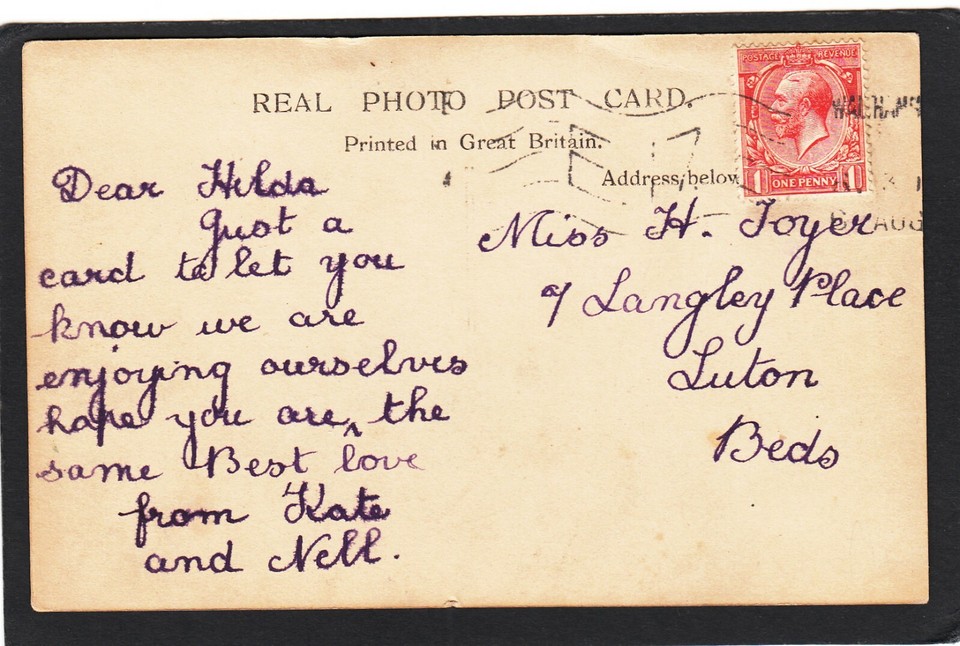 REAL PHOTO POST CARD.
Printed in Great Britain.
Address below
POSTAGE REVENUE
1 ONE PENNY 1
AUG
Dear Hilda
Just a
card to let you
know we are
enjoying ourselves
hope you are ^ the
same Best love
from Kate
and Nell.
Miss H. Toyer
7 Langley Place
Luton
Beds